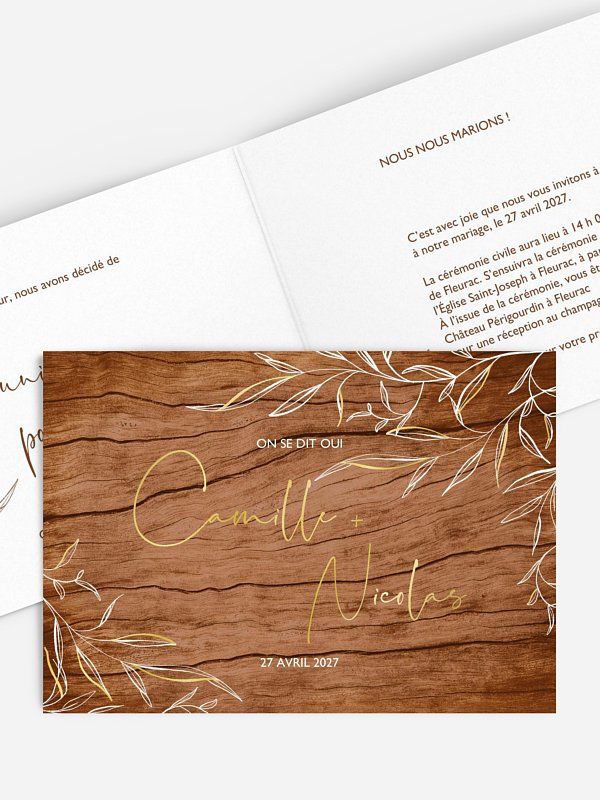 NOUS NOUS MARIONS !
C'est avec joie que nous vous invitons à
à notre mariage, le 27 avril 2027.
La cérémonie civile aura lieu à 14 h
de Fleurac. S'ensuivra la cérémonie
l'Église Saint-Joseph à Fleurac, à
À l'issue de la cérémonie, vous
Château Périgourdin à Fleurac
pour une réception au champagne
votre
nous avons décidé de
ON SE DIT OUI
Camille +
Nicolas
27 AVRIL 2027